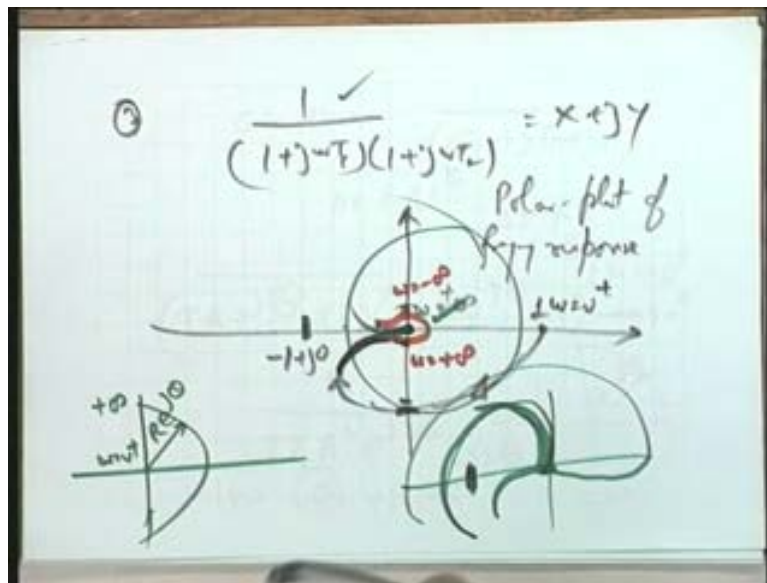 ②
1 ✓
(1+jωT₁)(1+jωT₂)
= x+jy
Polar-plot of
response
ω=-∞
1 ω=0⁺
-1+j0
ω=+∞
+∞
Re^jθ
ω=0⁺